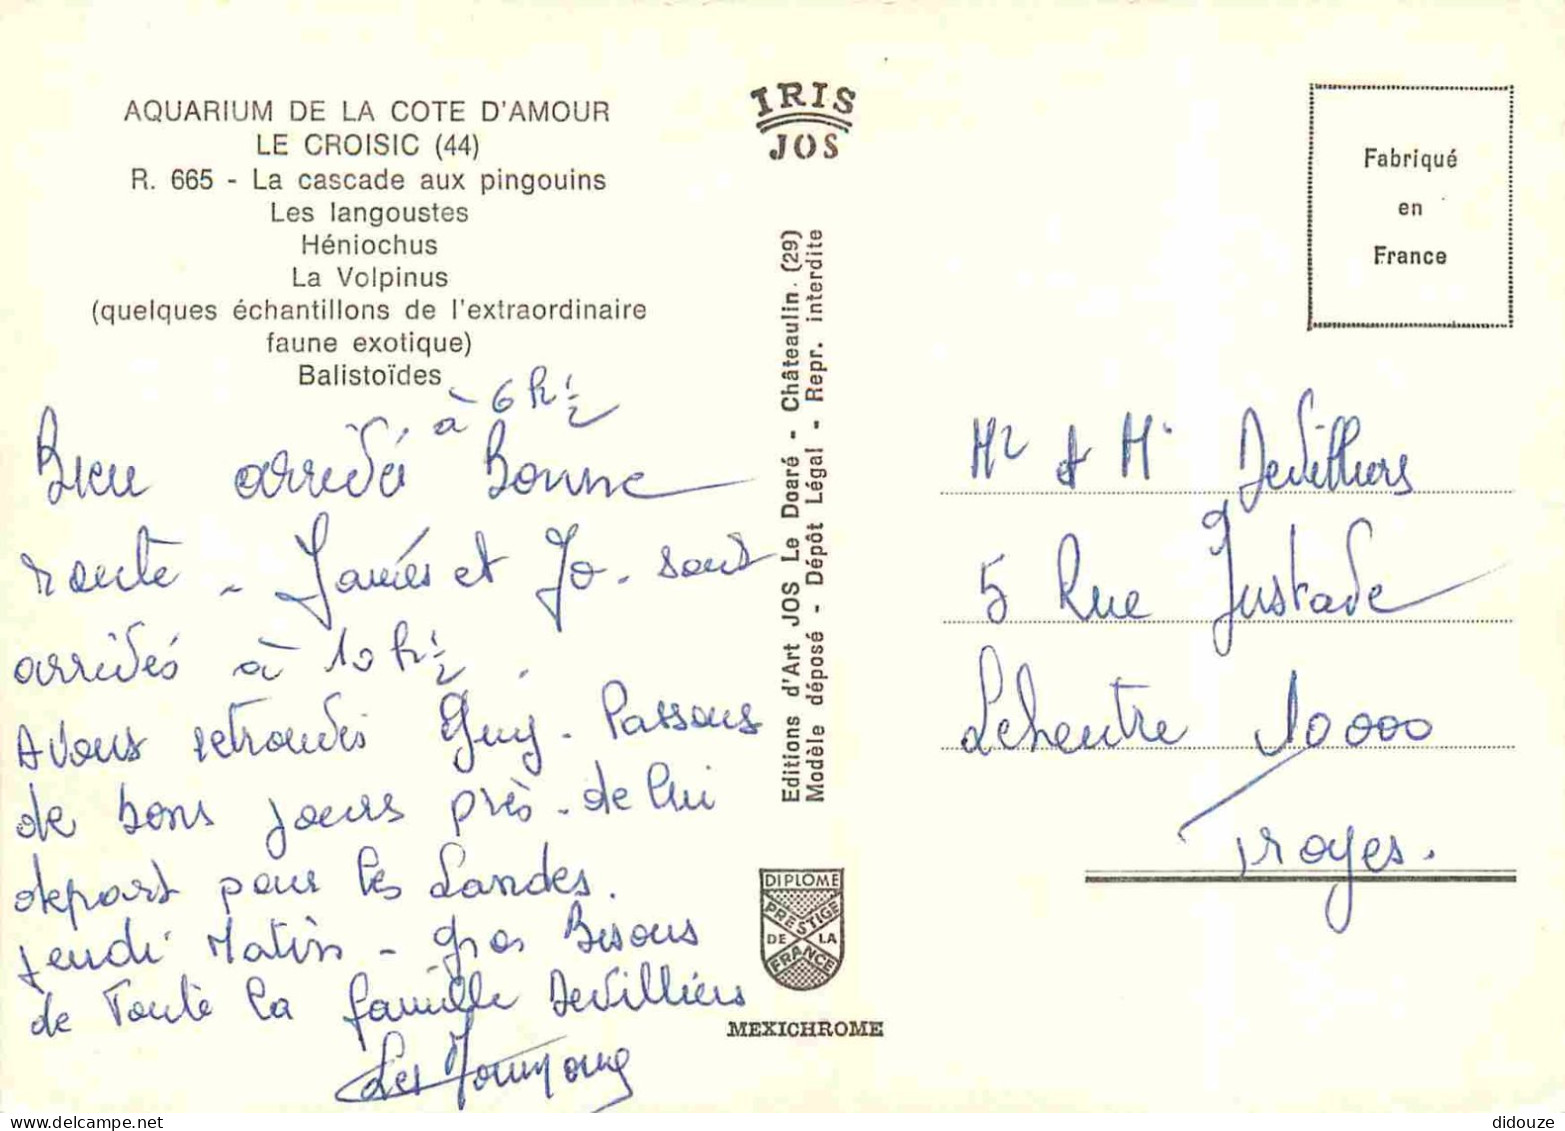 AQUARIUM DE LA COTE D'AMOUR
LE CROISIC (44)
R. 665 - La cascade aux pingouins
Les langoustes
Héniochus
La Volpinus
(quelques échantillons de l'extraordinaire
faune exotique)
Balistoïdes
à 6 h 1/2
Bien arrivé Bonne
route - James et Jo. sont
arrivés à 10 h 1/2.
Avons retrouvés Guy. Passons
de bons jours près de lui
depart pour les Landes.
jeudi Matin - Gros Bisous
de Toute la famille Devilliers
Les
IRIS
JOS
Editions d'Art JOS Le Doaré - Châteaulin. (29)
Modèle déposé - Dépôt Légal - Repr. interdite
DIPLOME
PRESTIGE
DE LA
FRANCE
MEXICHROME
Fabriqué
en
France
Mr & Me Devilliers
5 Rue Justade
Lehentre 10000
Troyes.
didouze